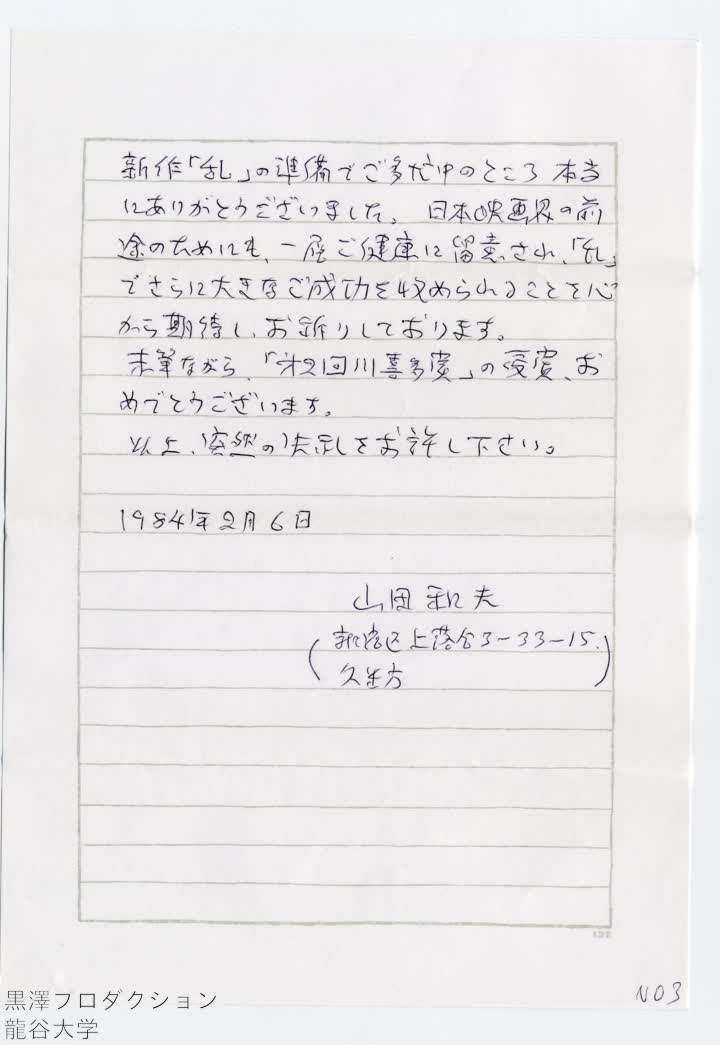 新作「乱」の準備でご多忙中のところ 本当
にありがとうございました。 日本映画界の前
途のためにも、一層ご健康に留意され、「乱」
でさらに大きなご成功を収められることを心
から期待し、お祈りしております。
末筆ながら、「第2回川喜多賞」の受賞、お
めでとうございます。
以上、突然の失礼をお許し下さい。
1984年2月6日
山田和夫
(新宿区上落合3-33-15.
方)
NO3
黒澤プロダクション
龍谷大学